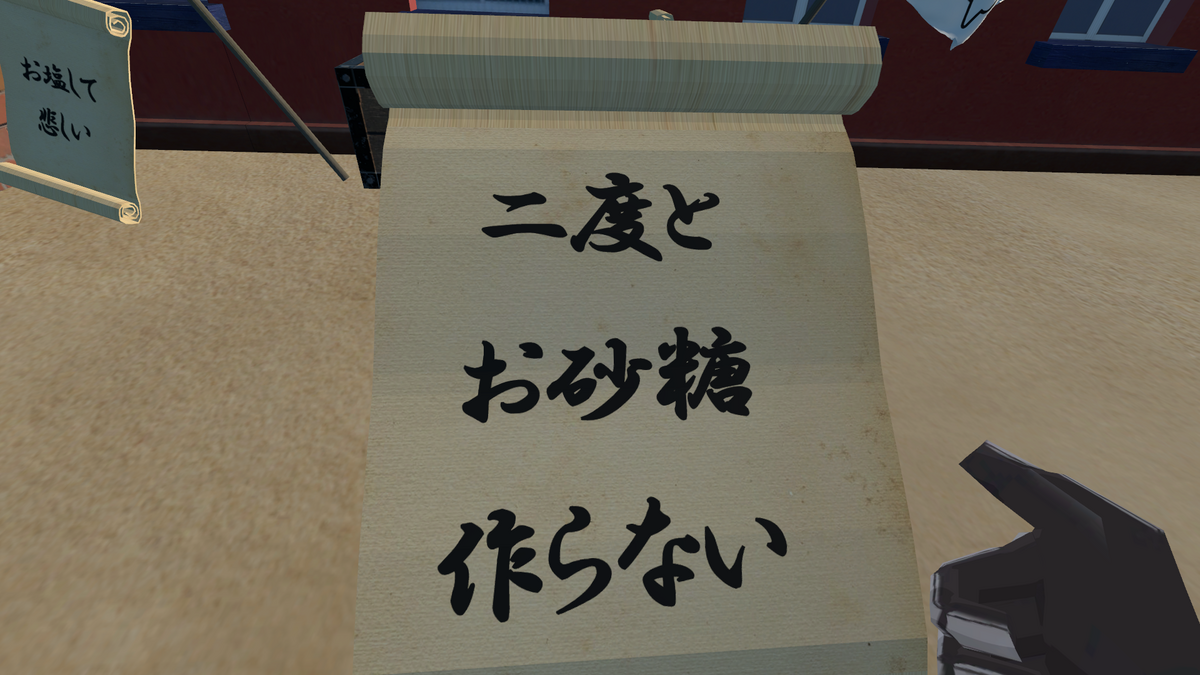 お塩して
悲しい
二度と
お砂糖
作らない